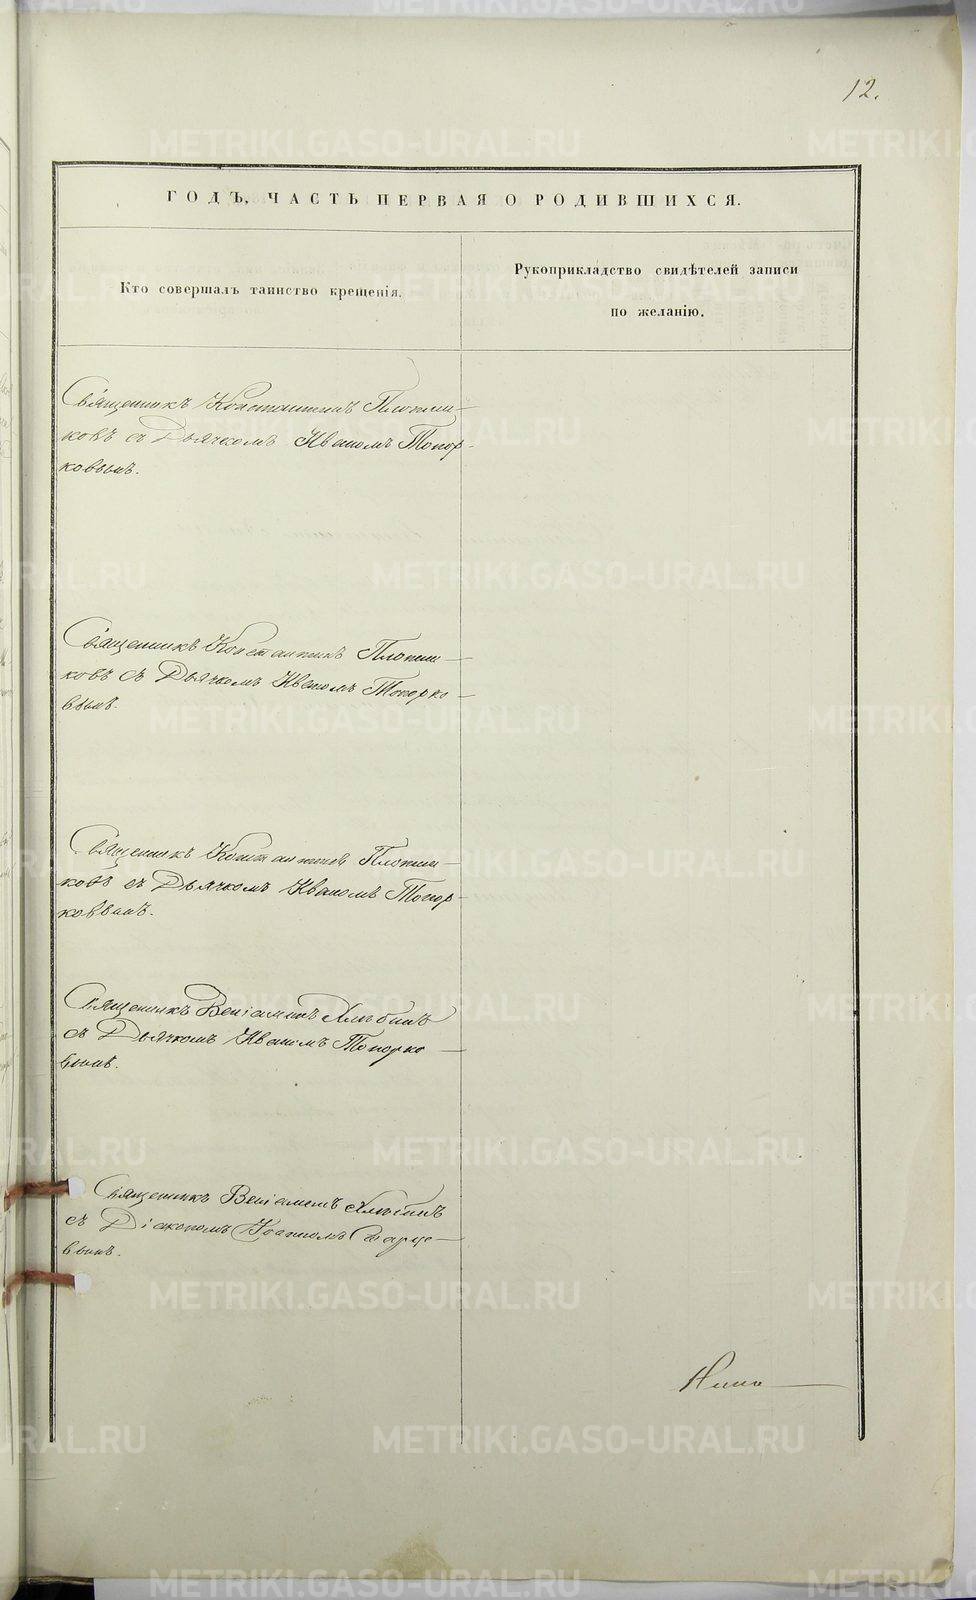 12.
ГОДЪ, ЧАСТЬ ПЕРВАЯ О РОДИВШИХСЯ.
Кто совершалъ таинство крещенія.
Рукоприкладство свидѣтелей записи
по желанію.
Священникъ Константинъ Плотни-
ковъ съ Дьячкомъ Иваномъ Топор-
ковымъ.
Священникъ Константинъ Плотни-
ковъ съ Дьячкомъ Иваномъ Топорко-
вымъ.
Священникъ Константинъ Плотни-
ковъ съ Дьячкомъ Иваномъ Топор-
ковымъ.
Священникъ Веніаминъ
съ Дьячкомъ Иваномъ Топорко-
вымъ.
Священникъ Веніаминъ
съ Діакономъ Іоанномъ Старце-
вымъ.
METRIKI.GASO-URAL.RU